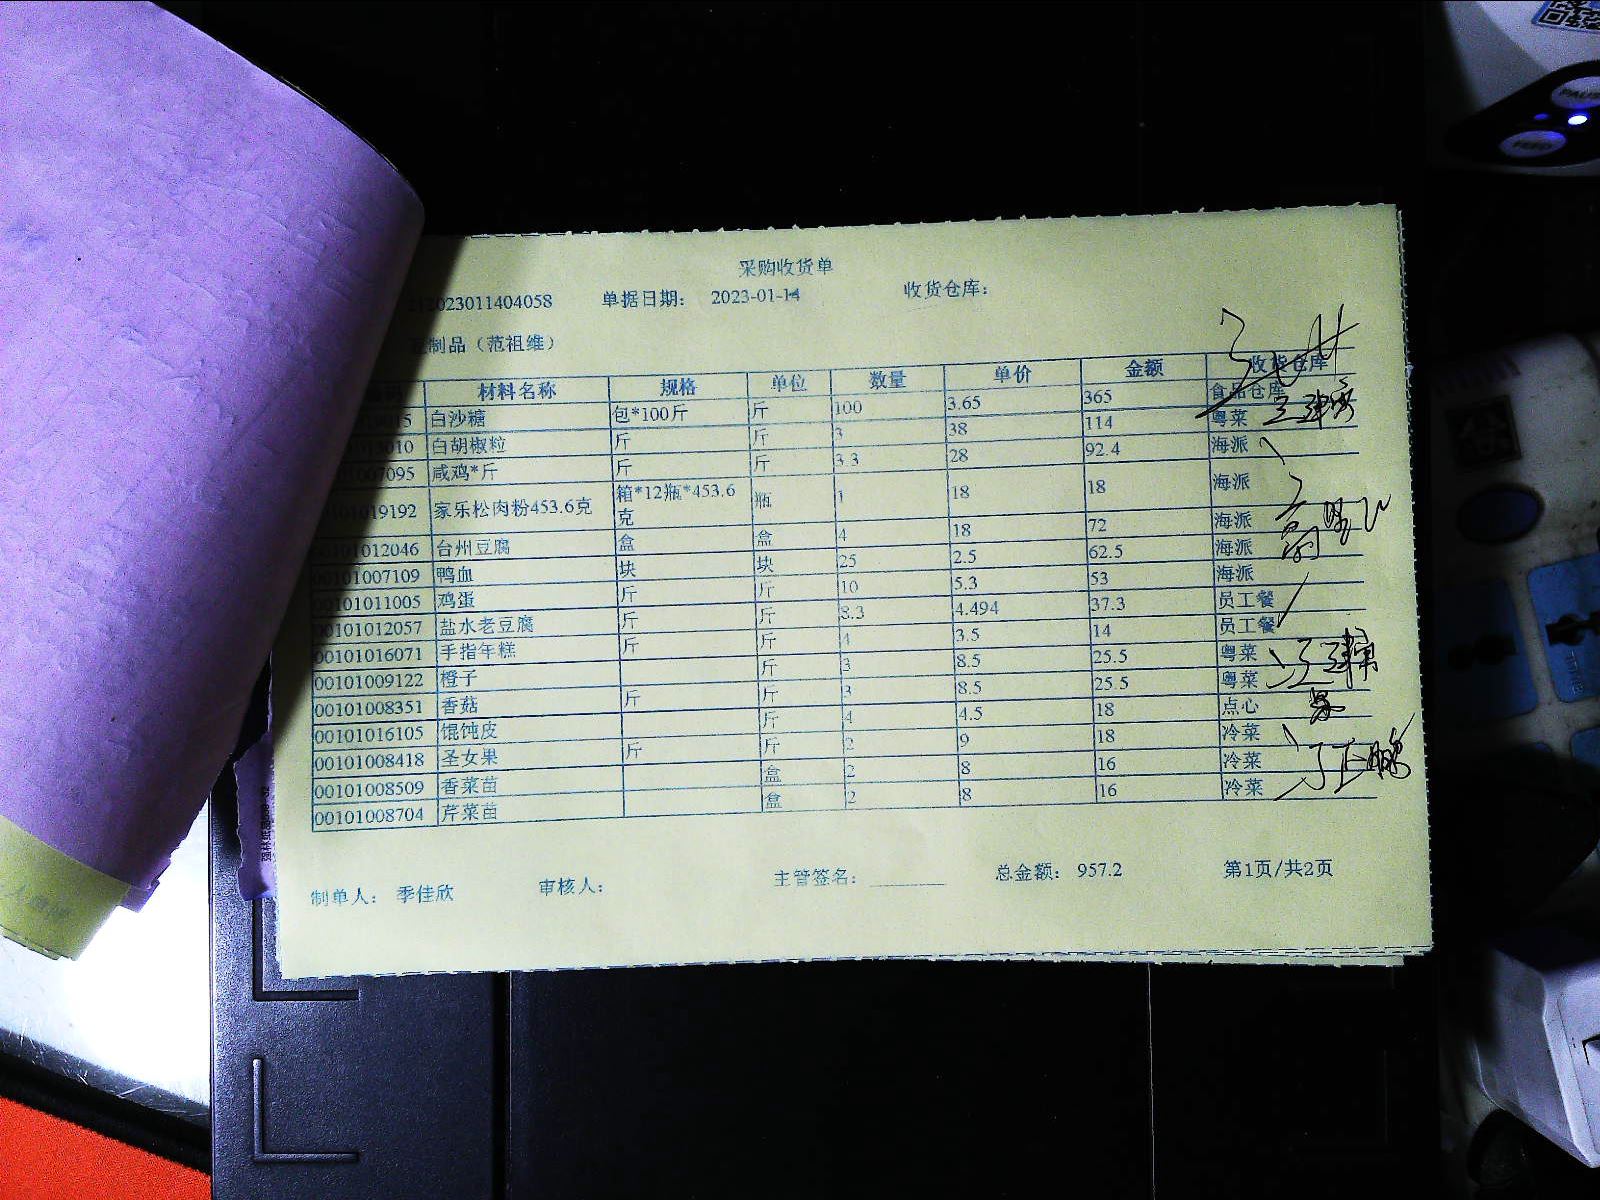 采购收货单
2023011404058 单据日期： 2023-01-14 收货仓库：
制品（范祖维）
材料名称 规格 单位 数量 单价 金额 收货仓库
015 白沙糖 包*100斤 斤 100 3.65 365 食品仓库
010 白胡椒粒 斤 斤 3 38 114 粤菜
007095 咸鸡*斤 斤 斤 3.3 28 92.4 海派
01019192 家乐松肉粉453.6克 箱*12瓶*453.6克 瓶 1 18 18 海派
101012046 台州豆腐 盒 盒 4 18 72 海派
00101007109 鸭血 块 块 25 2.5 62.5 海派
00101011005 鸡蛋 斤 斤 10 5.3 53 海派
00101012057 盐水老豆腐 斤 斤 8.3 4.494 37.3 员工餐
00101016071 手指年糕 斤 斤 4 3.5 14 员工餐
00101009122 橙子 斤 3 8.5 25.5 粤菜
00101008351 香菇 斤 斤 3 8.5 25.5 粤菜
00101016105 馄饨皮 斤 4 4.5 18 点心
00101008418 圣女果 斤 斤 2 9 18 冷菜
00101008509 香菜苗 盒 2 8 16 冷菜
00101008704 芹菜苗 盒 2 8 16 冷菜
制单人： 季佳欣 审核人： 主管签名： 总金额： 957.2 第1页/共2页